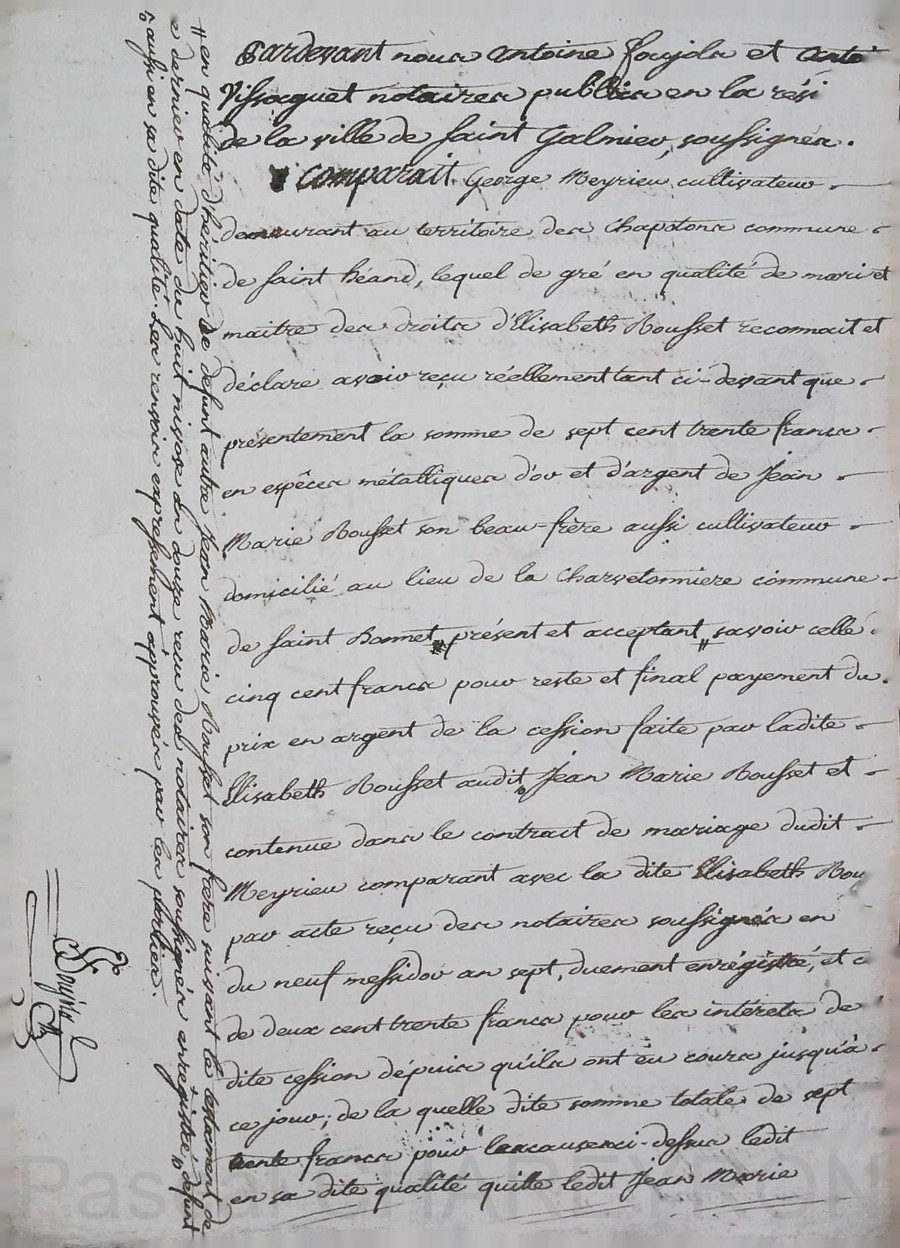 Pardevant nous Antoine Foujols et Anto
Vissaguet notaires publics en la rési
de la ville de saint Galmier, soussignés.
Comparait George Meyrieu cultivateur
demeurant au territoire des Chapotons commune
de saint héand, lequel de gré en qualité de mari et
maitre des droits d'Elisabeth Rousset reconnait et
déclare avoir reçu réellement tant ci-devant que
présentement la somme de sept cent trente francs
en espêces métalliques d'or et d'argent de Jean
Marie Rousset son beau-frère aussi cultivateur
domicilié au lieu de la Charvetonniere commune
de saint Bonnet # présent et acceptant # savoir celle
cinq cent francs pour reste et final payement du
prix en argent de la cession faite par ladite
Elisabeth Rousset audit Jean Marie Rousset et
contenue dans le contrat de mariage dudit
Meyrieu comparant avec la dite Elisabeth Rou
par acte reçu des notaires soussignés en
du neuf messidor an sept, duement enrégistré, et c
de deux cent trente francs pour les intérets de
dite cession dépuis qu'ils ont eu cours jusqu'à
ce jour; de la quelle dite somme totale de sept
trente francs pour les causes ci-dessus ledit
en sa dite qualité quitte ledit Jean Marie
# en qualité d'héritier de defunt autre Jean Marie Rousset son frère suivant le testament de
ce dernier en date du huit nivose an douze reçu des notaires soussignés enregistré, defunt
aussi en sa dite qualité. Les renvois expressément approuvés par les parties.